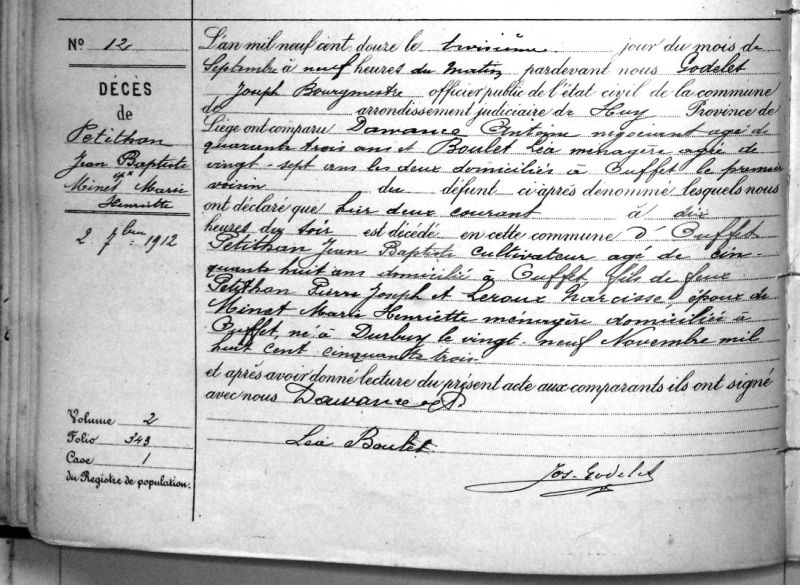 N° 12
DÉCÈS
de
Petithan
Jean Baptiste
Ep^x
Minet Marie
Henriette
2 7bre 1912
Volume 2
Folio 343
Case 1
du Registre de population.
L'an mil neuf cent douze le troisième jour du mois de
Septembre à neuf heures du matin pardevant nous Godelet
Joseph Bourgmestre officier public de l'état civil de la commune
de arrondissement judiciaire de Huy Province de
Liège ont comparu Dawance Antoine négociant agé de
quarante trois ans et Boulet Léa ménagère agée de
vingt-sept ans les deux domiciliés à Ouffet le premier
voisin du défunt ci-après dénommé, lesquels nous
ont déclaré que hier deux courant à dix
heures du soir est décédé en cette commune d'Ouffet
Petithan Jean Baptiste cultivateur agé de cin-
quante huit ans domicilié à Ouffet fils de feux
Petithan Pierre Joseph et Leroux Narcisse, époux de
Minet Marie Henriette ménagère domiciliée à
Ouffet né à Durbuy le vingt-neuf Novembre mil
huit cent cinquante trois
et après avoir donné lecture du présent acte aux comparants ils ont signé
avec nous Dawance
Léa Boulet
Jos. Godelet